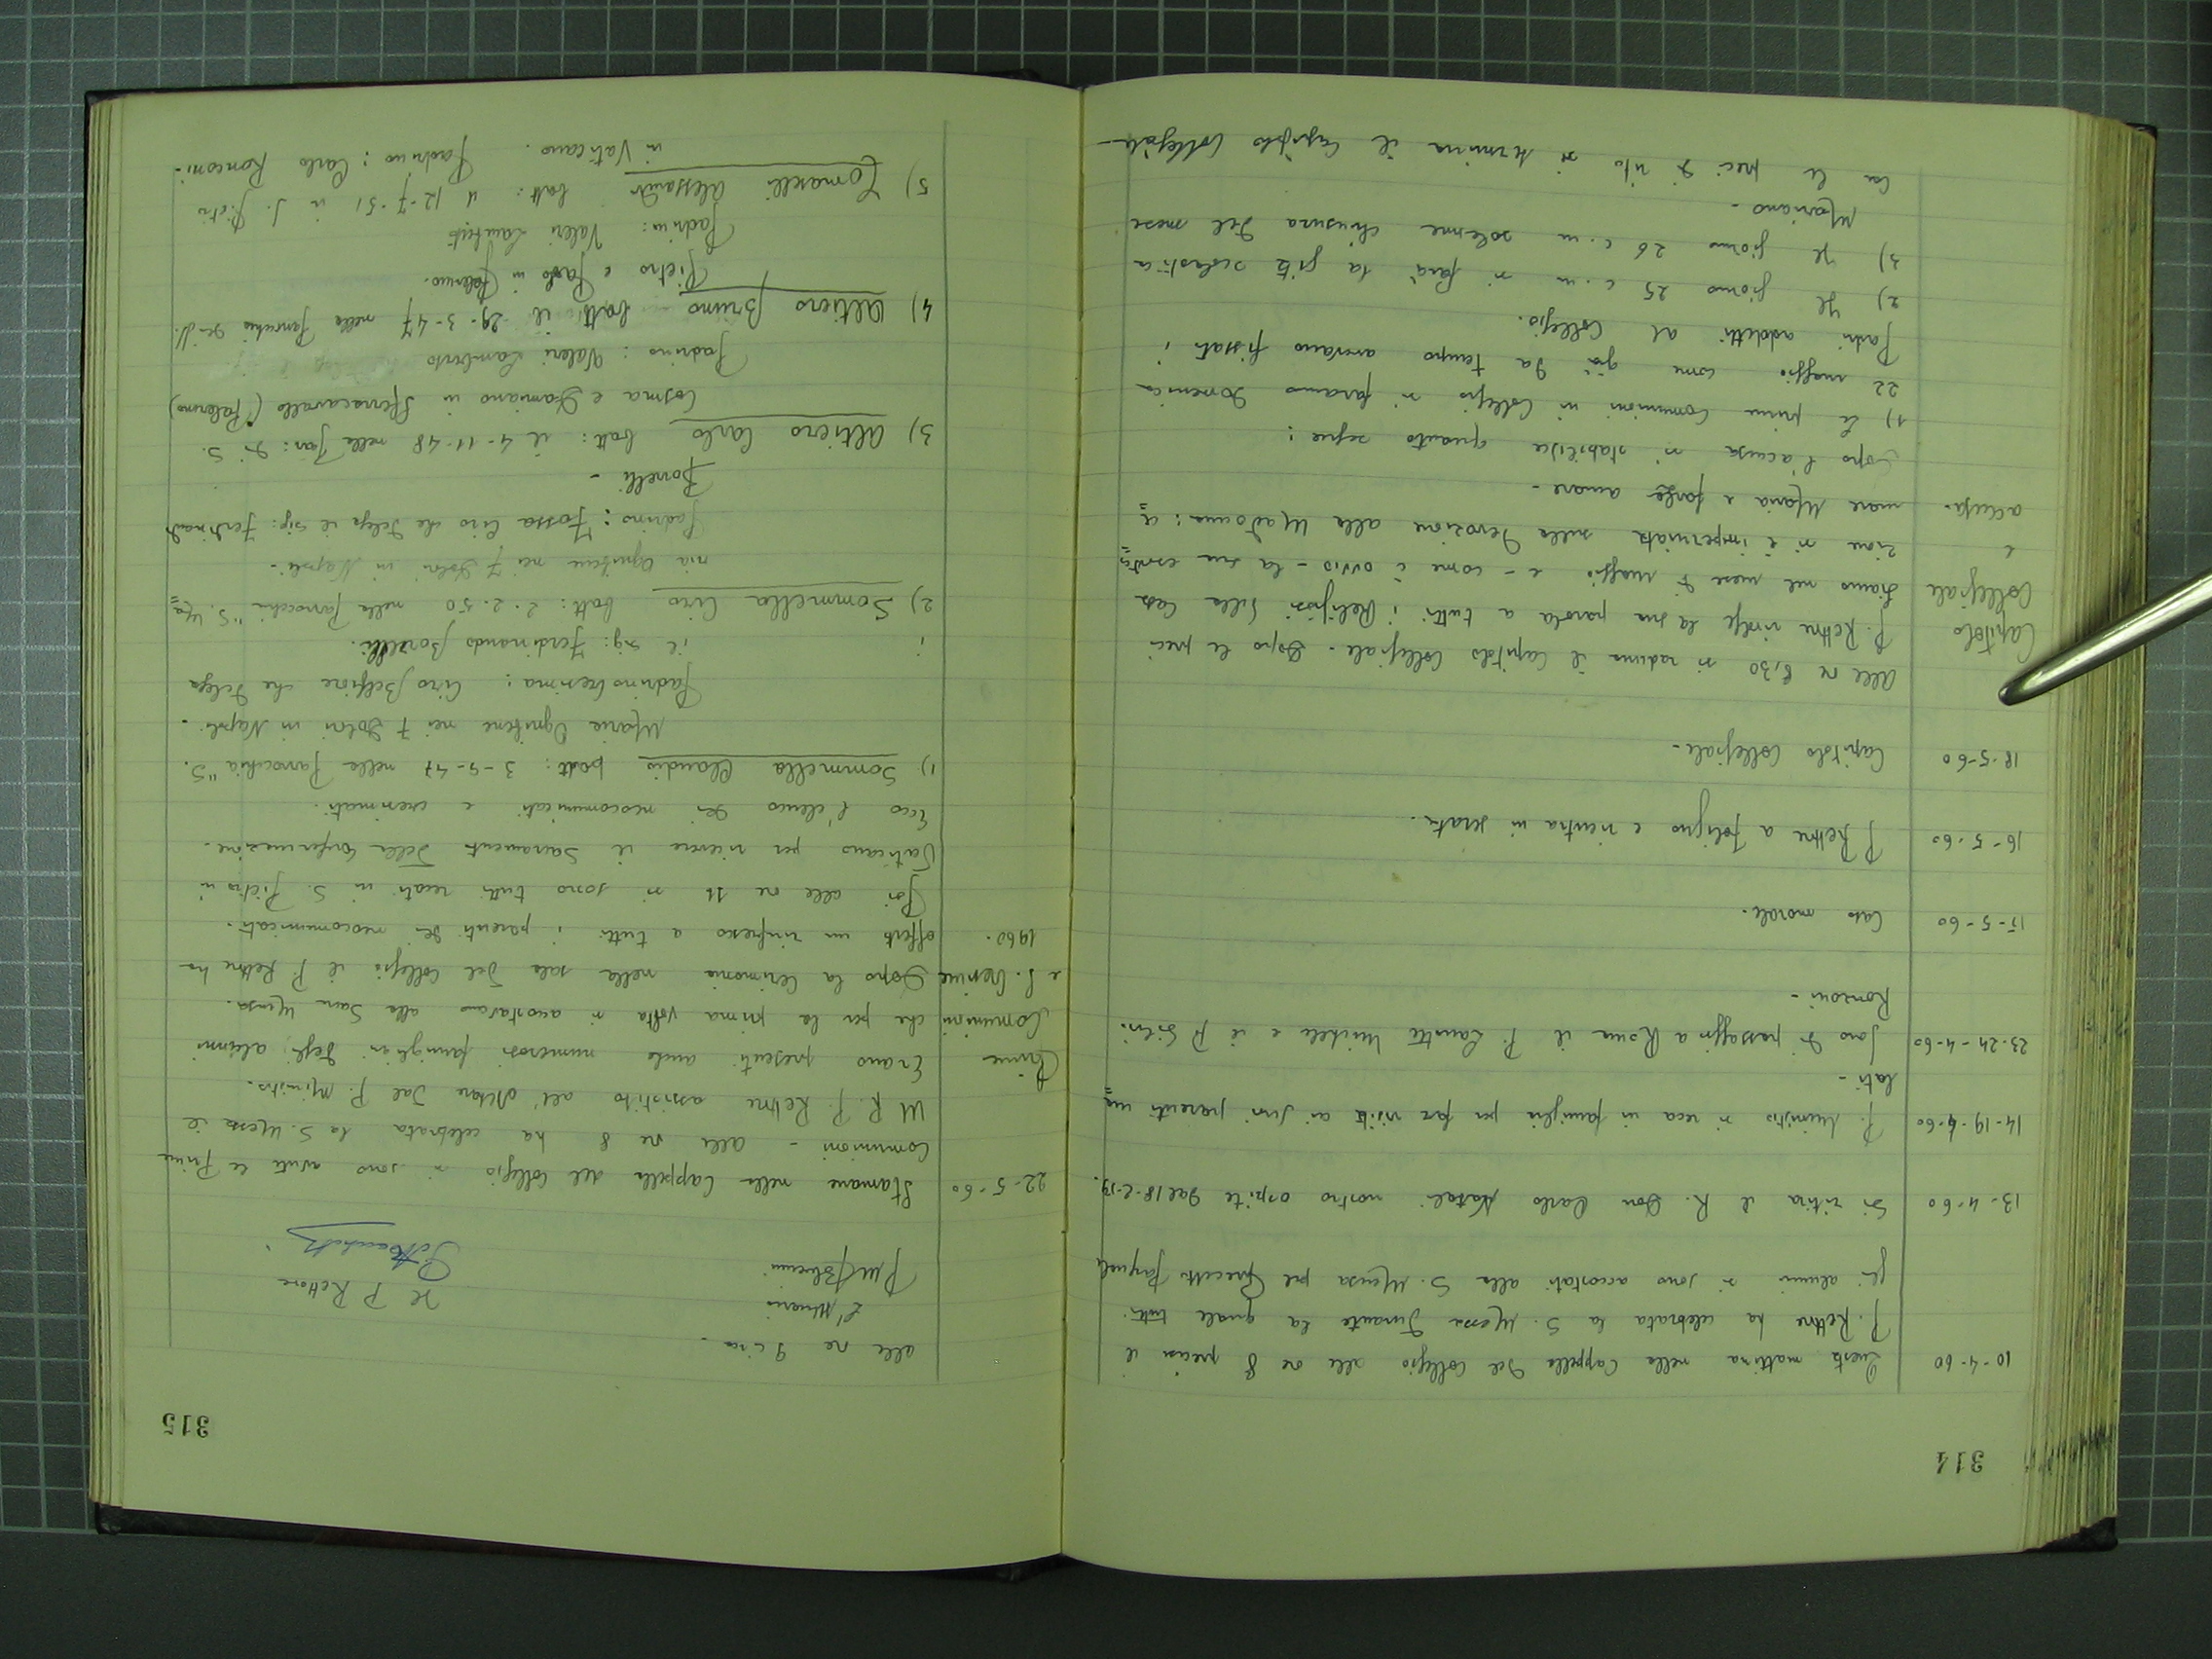 314
10-4-60 Questa mattina nella Cappella del Collegio alle ore 8 precise il
P. Rettore ha celebrata la S. Messa durante la quale tutti
gli alunni si sono accostati alla S. Mensa pel Precetto Pasquale
13-4-60 Si ritira il R. Don Carlo Natali nostro ospite dal 18-2-59.
14-19-4-60 P. Ministro si reca in famiglia per far visita ai suoi parenti am=
lati -
23-24-4-60 Sono di passaggio a Roma il P. Michele e il P.
Ronzoni -
15-5-60 Caso morale.
16-5-60 P. Rettore a Foligno e rientra in serata.
18-5-60 Capitolo Collegiale -
Capitolo
Collegiale
e
accusa.
Alle ore 8,30 si raduna il Capitolo Collegiale. Dopo le preci
P. Rettore rivolge la sua parola a tutti i Religiosi della Casa
Siamo nel mese di maggio e - come è ovvio - la sua esorta=
zione si è imperniata sulla devozione alla Madonna: a=
mare Maria e farla amare -
Dopo l'accusa si stabilisce quanto segue:
1) Le prime Comunioni in Collegio si faranno Domenica
22 maggio come già da tempo avevano fissato i
Padri addetti al Collegio.
2) Il giorno 25 c.m. si farà la gita scolastica
3) Il giorno 26 c.m. solenne chiusura del mese
Mariano -
Con le preci di rito si termina il Capitolo Collegiale -
315
alle ore 9 circa -
L'Attuario
Il P. Rettore
22-5-60 Stamane nella Cappella del Collegio si sono avute le Prime
Comunioni - Alle ore 8 ha celebrata la S. Messa il
M. R. P. Rettore assistito all'Altare dal P. Ministro.
Prime
Comunioni
e S. Cresime
1960.
Erano presenti anche numerosi famigliari degli alunni
che per la prima volta si accostavano alla Sacra Mensa.
Dopo la Cerimonia nella sala del Collegio il P. Rettore ha
offerto un rinfresco a tutti i parenti dei neocomunicati.
Poi alle ore 11 si sono tutti recati in S. Pietro in
Vaticano per ricevere il Sacramento della Confermazione.
Ecco l'elenco dei neocomunicati e cresimati.
1) Sommella Claudio batt: 3-5-47 nella Parrocchia "S.
Maria Ognibene nei 7 Dolori in Napoli -
Padrino Cresima: Ciro Belfiore che delega
il sig: Ferdinando Borrelli.
2) Sommella Ciro batt: 2.2.50 nella Parrocchia "S. Ma=
ria Ognibene nei 7 Dolori in Napoli -
Padrino: Fossa Ciro che delega il sig: Ferdinando
Borrelli -
3) Altiero Carlo batt: il 4-11-48 nella Par: di S.
Cosma e Damiano in Sferracavallo (Palermo)
Padrino: Valeri Lamberto
4) Altiero Bruno batt: il 29-3-47 nella Parrocchia dei SS.
Pietro e Paolo in Palermo.
Padrino: Valeri Lamberto
5) Tomaselli Alessandro batt: il 12-7-51 in S. Pietro
in Vaticano. Padrino: Carlo Ronconi -